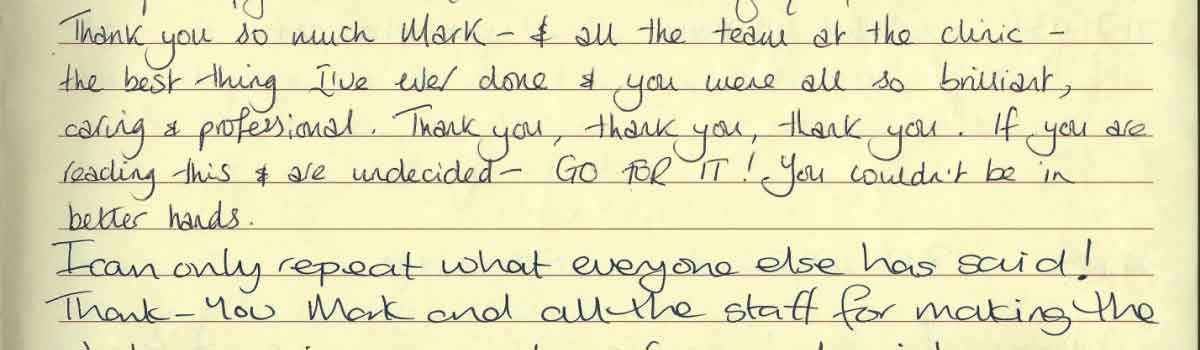 Thank you so much Mark - & all the team at the clinic -
the best thing I've ever done & you were all so brilliant,
caring & professional. Thank you, thank you, thank you. If you are
reading this & are undecided - GO FOR IT! You couldn't be in
better hands.
I can only repeat what everyone else has said!
Thank-You Mark and all the staff for making the